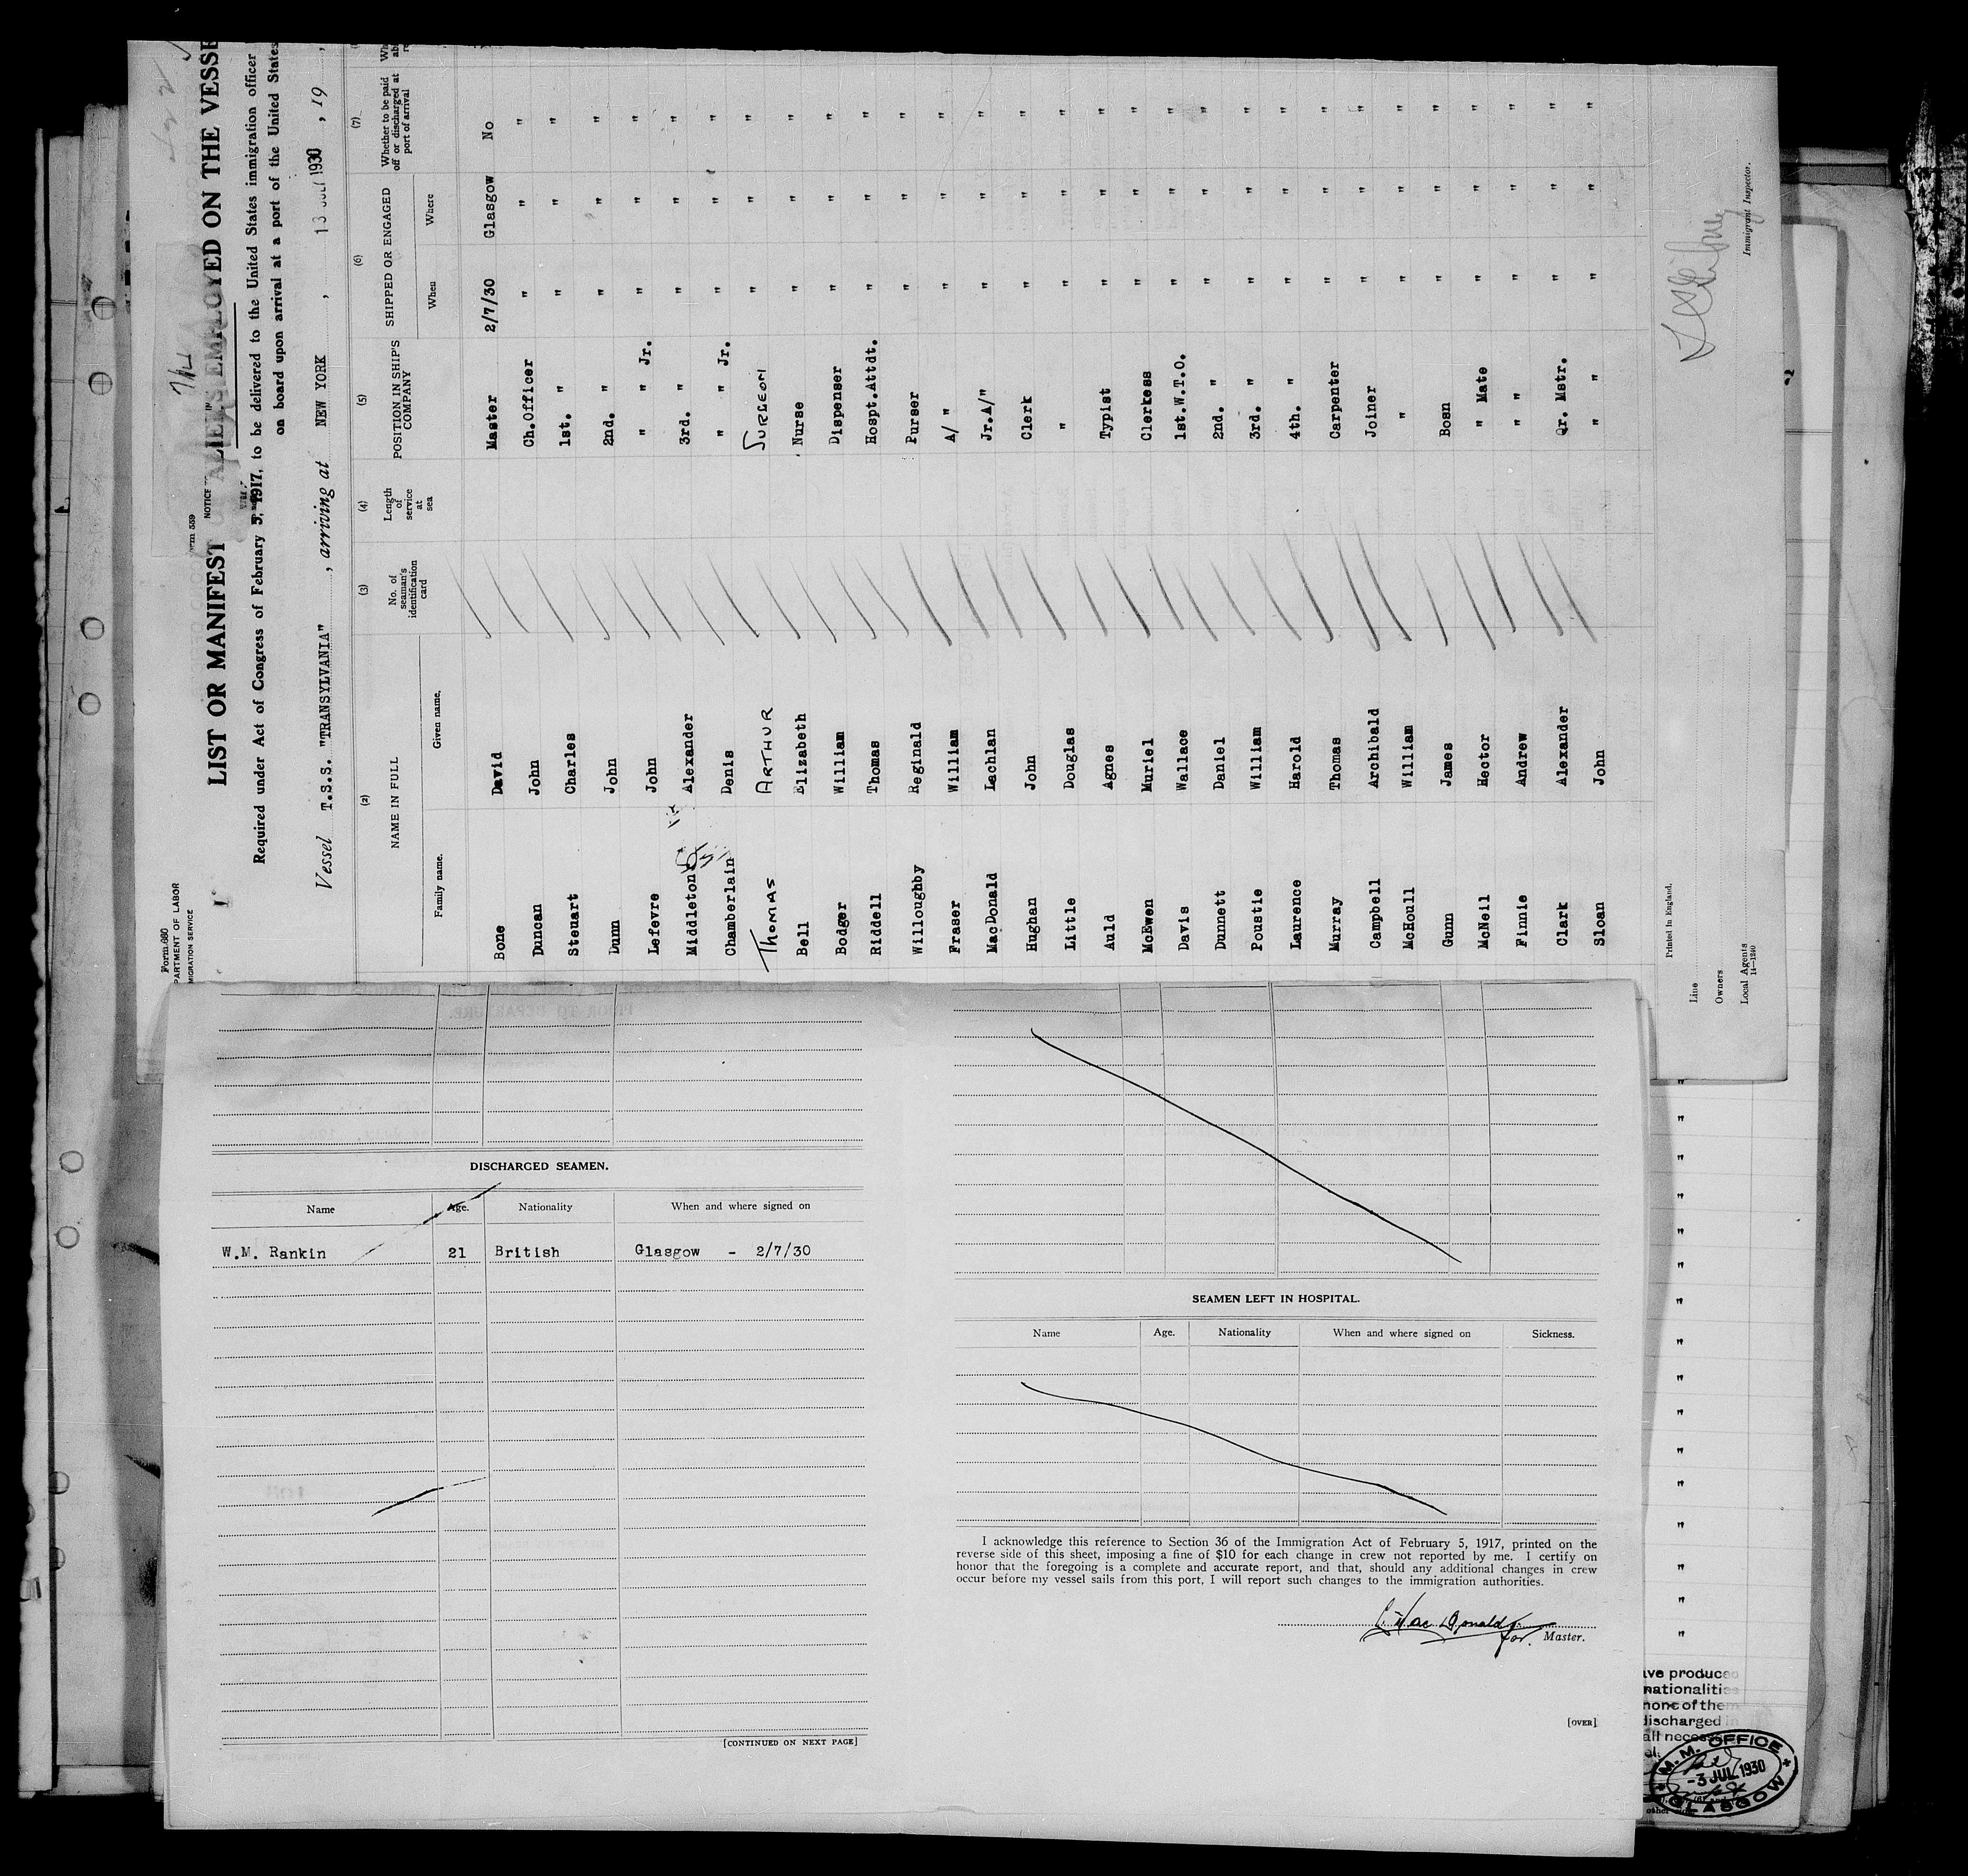 Form 680
PARTMENT OF LABOR
MIGRATION SERVICE
NOTICE
LIST OR MANIFEST ALIENS EMPLOYED ON THE VESSE
Required under Act of Congress of February 5, 1917, to be delivered to the United States immigration officer
on board upon arrival at a port of the United States
Vessel T.S.S. "TRANSYLVANIA", arriving at NEW YORK, 13 JUL 1930, 19
(2) (3) (4) (5) (6) (7)
NAME IN FULL No. of seaman's identification card Length of service at sea POSITION IN SHIP'S COMPANY SHIPPED OR ENGAGED Whether to be paid off or discharged at port of arrival
Family name. Given name. When Where
Bone David Master 2/7/30 Glasgow No
Duncan John Ch.Officer " " "
Steuart Charles 1st. " " " "
Dunn John 2nd. " " " "
Lefevre John " " Jr. " " "
Middleton Alexander 3rd. " " " "
Chamberlain Denis " " Jr. " " "
THOMAS ARTHUR SURGEON " " "
Bell Elizabeth Nurse " " "
Bodger William Dispenser " " "
Riddell Thomas Hospt.Attdt. " " "
Willoughby Reginald Purser " " "
Fraser William A/ " " " "
MacDonald Lachlan Jr.A/" " " "
Hughan John Clerk " " "
Little Douglas " " " "
Auld Agnes Typist " " "
McEwen Muriel Clerkess " " "
Davis Wallace 1st.W.T.O. " " "
Dunnett Daniel 2nd. " " " "
Poustie William 3rd. " " " "
Laurence Harold 4th. " " " "
Murray Thomas Carpenter " " "
Campbell Archibald Joiner " " "
McHoull William " " " "
Gunn James Bosn " " "
McNeil Hector " Mate " " "
Finnie Andrew " " " " "
Clark Alexander Qr. Mstr. " " "
Sloan John " " " " "
Printed in England.
Line
Owners
Local Agents
14—1240
Immigrant Inspector.
DISCHARGED SEAMEN.
Name Age. Nationality When and where signed on
W.M. Rankin 21 British Glasgow - 2/7/30
[CONTINUED ON NEXT PAGE]
SEAMEN LEFT IN HOSPITAL.
Name Age. Nationality When and where signed on Sickness.
I acknowledge this reference to Section 36 of the Immigration Act of February 5, 1917, printed on the
reverse side of this sheet, imposing a fine of $10 for each change in crew not reported by me. I certify on
honor that the foregoing is a complete and accurate report, and that, should any additional changes in crew
occur before my vessel sails from this port, I will report such changes to the immigration authorities.
MacDonald
for. Master.
[OVER]
ave produced
nationalities
none of them
discharged in
all neces
M. M. OFFICE
-3 JUL 1930
GLASGOW
other